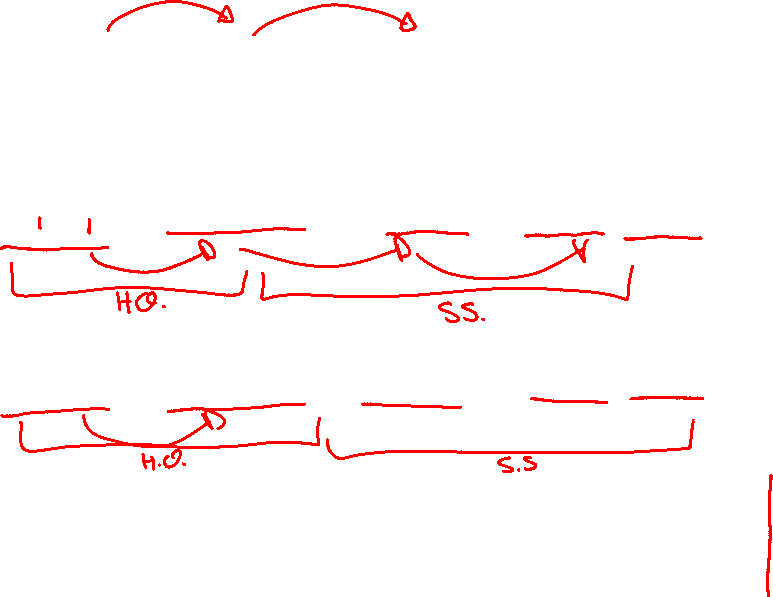 HO. SS.
H.O. S.S